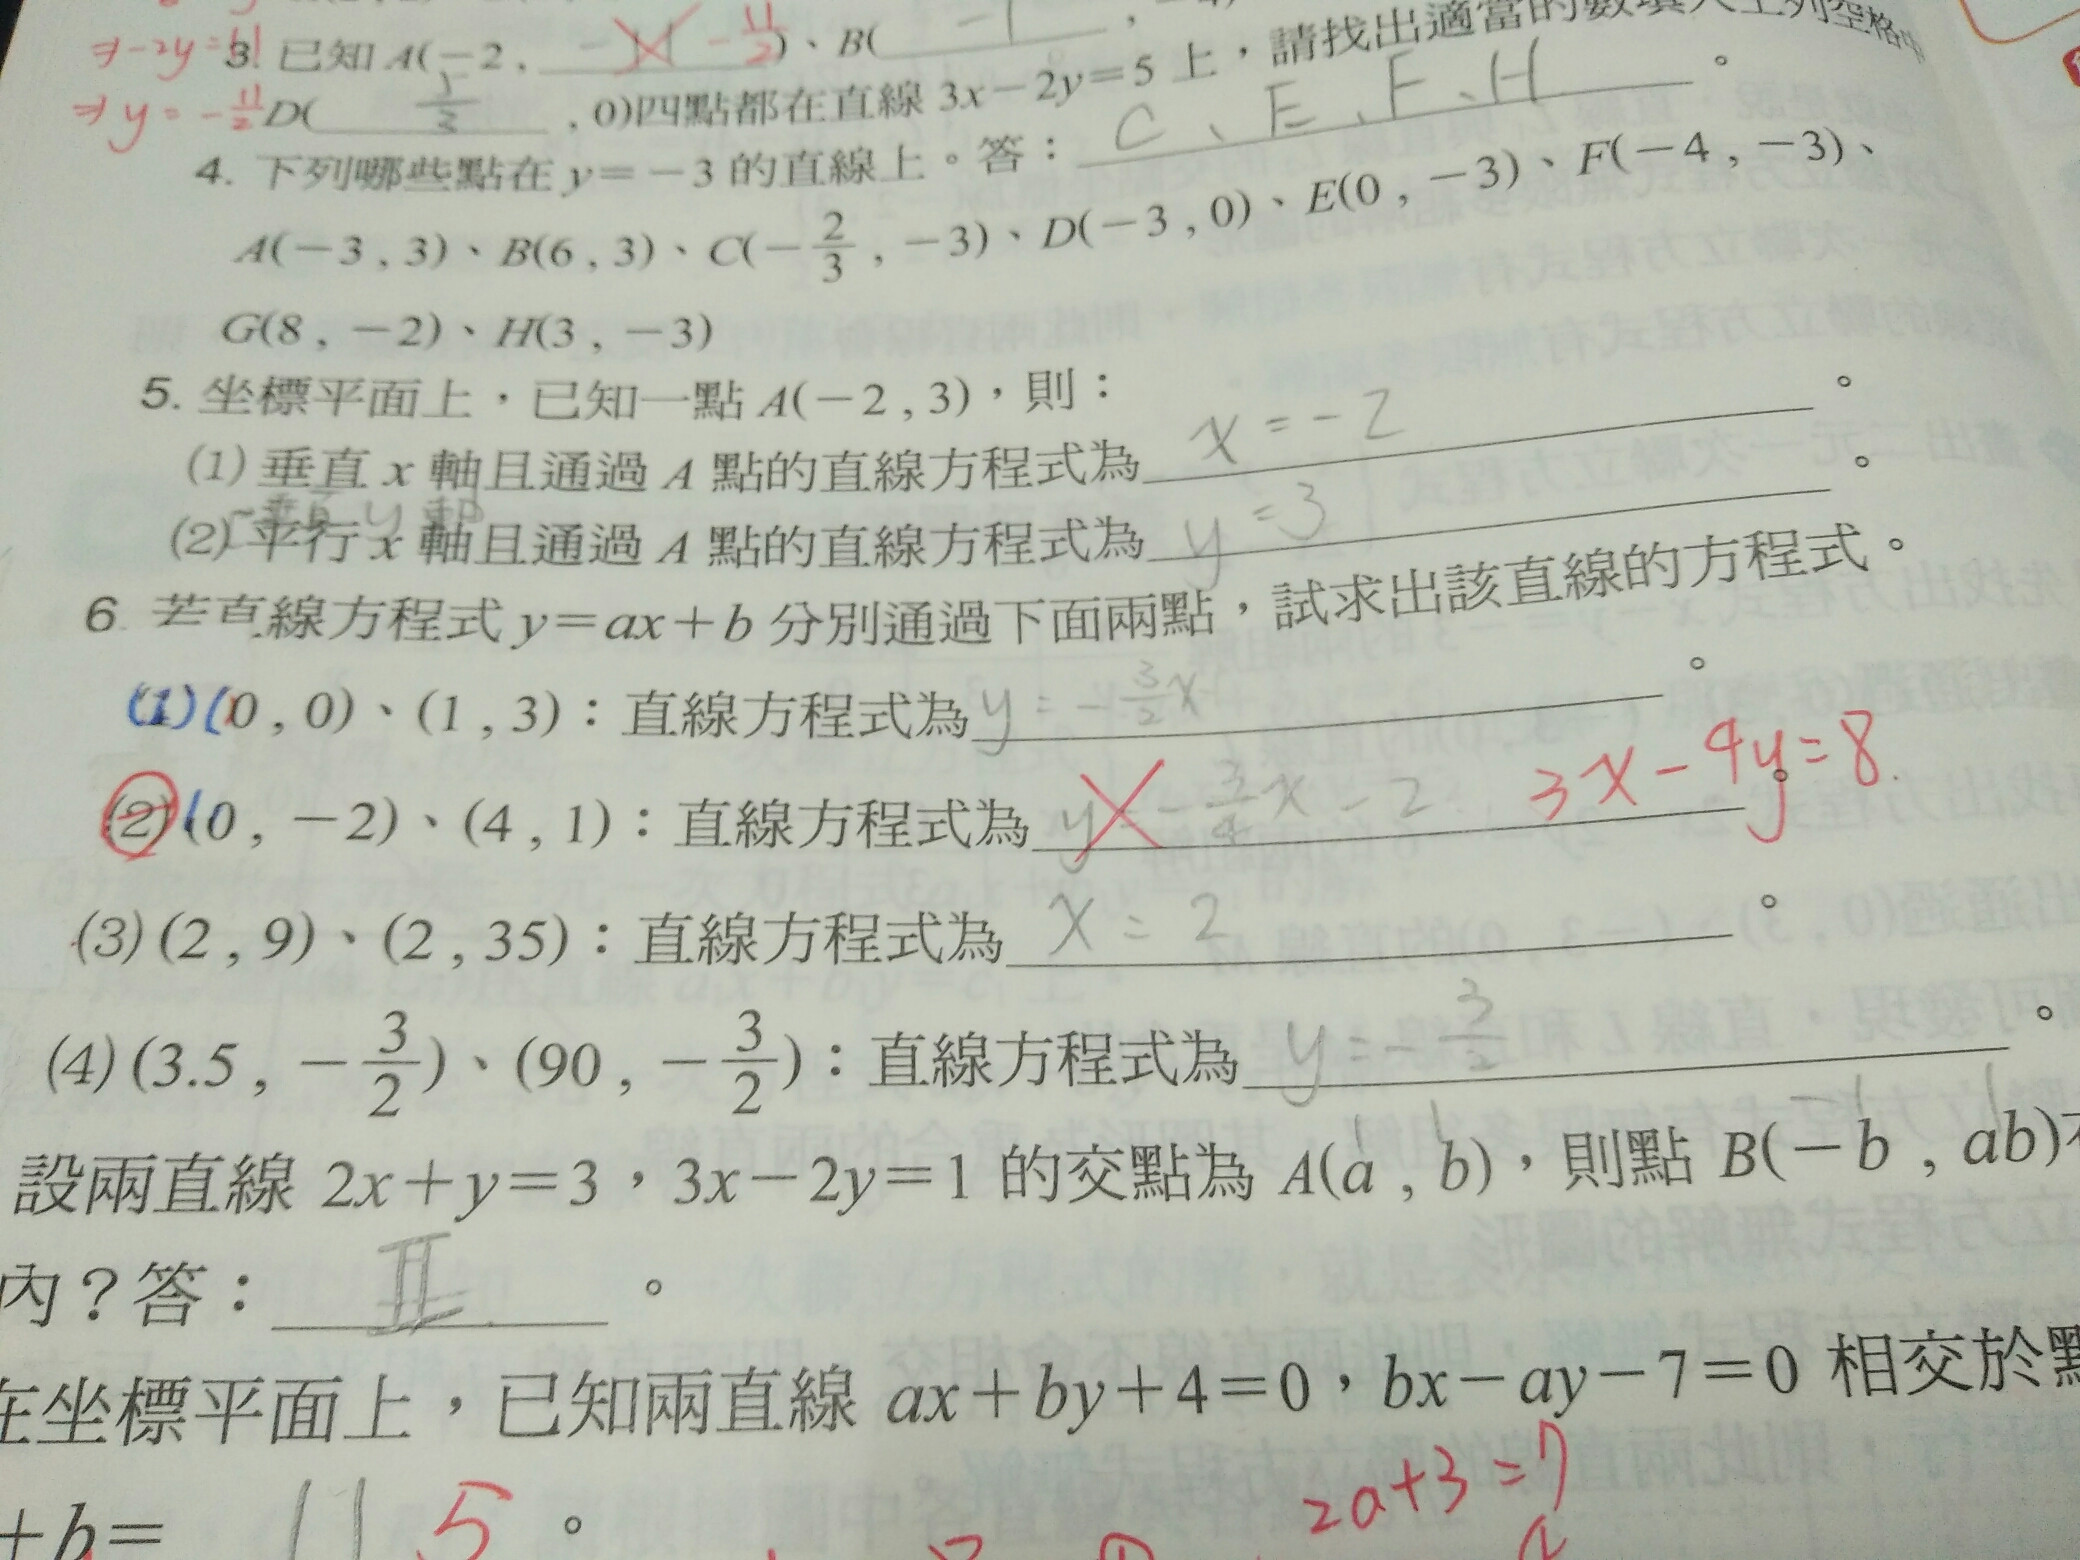 ⇒-2y=11
3. 已知 A(-2, -11 -11/2)、B( -1 , -4)
⇒ y = -11/2 D( 5/3 , 0)四點都在直線 3x-2y=5 上,請找出適當的數填入上列空格中
4. 下列哪些點在 y=-3 的直線上。答: C、E、F、H 。
A(-3,3)、B(6,3)、C(-2/3,-3)、D(-3,0)、E(0,-3)、F(-4,-3)、
G(8,-2)、H(3,-3)
5. 坐標平面上,已知一點 A(-2,3),則:
(1) 垂直 x 軸且通過 A 點的直線方程式為 x=-2 。
垂直 y 軸
(2) 平行 x 軸且通過 A 點的直線方程式為 y=3 。
6. 若直線方程式 y=ax+b 分別通過下面兩點,試求出該直線的方程式。
(1)(0,0)、(1,3):直線方程式為 y=-3/2x 。
(2)(0,-2)、(4,1):直線方程式為 y=-3/4x-2 3x-4y=8 。
(3)(2,9)、(2,35):直線方程式為 x=2 。
(4)(3.5,-3/2)、(90,-3/2):直線方程式為 y=-3/2 。
1 1 -1 1
設兩直線 2x+y=3,3x-2y=1 的交點為 A(a,b),則點 B(-b,ab)
內?答: II 。
在坐標平面上,已知兩直線 ax+by+4=0,bx-ay-7=0 相交於點
2a+3=7
+b= 11 5 。